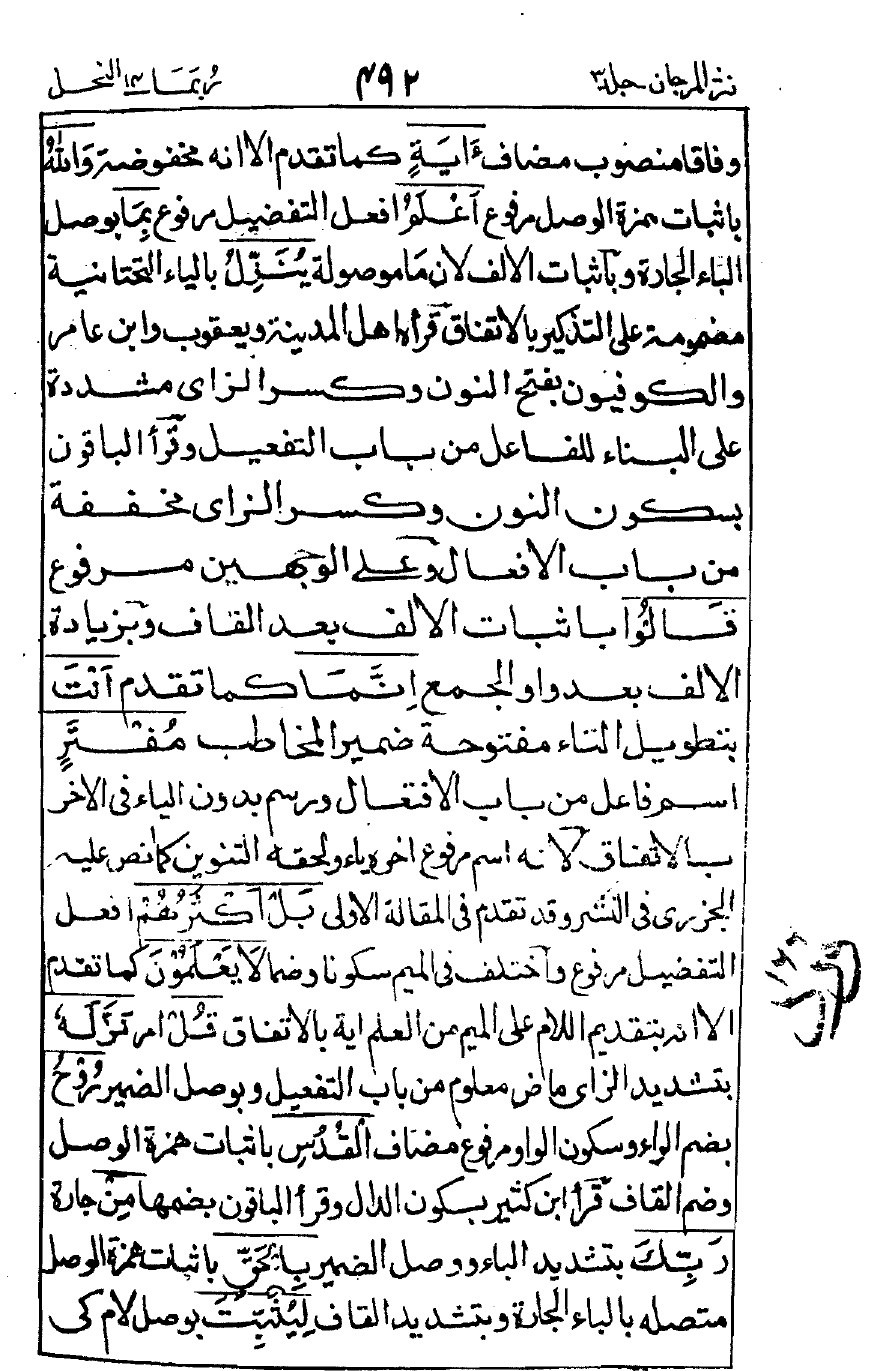 نثر المرجان جلد ٣ ٤٩٢ ربما ١٤ النحل
وفاقا منصوب مضاف ءَايَةٍ كما تقدم الا انه مخفوضة وَاللّٰهُ
باثبات همزة الوصل مرفوع اَعْلَمُ افعل التفضيل مرفوع بِمَا بوصل
الباء الجارة وباثبات الالف لان مَا موصولة يُنَزِّلُ بالياء التحتانية
مضمومة على التذكير بالاتفاق قرأه اهل المدينة ويعقوب وابن عامر
والكوفيون بفتح النون وكسر الزاى مشددة
على البناء للفاعل من باب التفعيل وقرأ الباقون
بسكون النون وكسر الزاى مخففة
من باب الافعال وعلى الوجهين مرفوع
قَالُوْا باثبات الالف بعد القاف وبزيادة
الالف بعد واو الجمع اِنَّمَا كما تقدم اَنْتَ
بتطويل التاء مفتوحة ضمير المخاطب مُفْتَرٍ
اسم فاعل من باب الافتعال ورسم بدون الياء فى الاخر
بالاتفاق لانه اسم مرفوع اخره ياء ولحقه التنوين كما نص عليه
الجزرى فى النشر وقد تقدم فى المقالة الاولى بَلْ اَكْثَرُهُمْ افعل
التفضيل مرفوع واختلف فى الميم سكونا وضما لَا يَعْلَمُوْنَ كما تقدم
الا انه بتقديم اللام على الميم من العلم اية بالاتفاق قُلْ امر نَزَّلَهٗ
بتشديد الزاى ماض معلوم من باب التفعيل وبوصل الضمير رُوْحُ
بضم الراء وسكون الواو مرفوع مضاف الْقُدُسِ باثبات همزة الوصل
وضم القاف قرأ ابن كثير بسكون الدال وقرأ الباقون بضمها مِنْ جارة
رَبِّكَ بتشديد الباء ووصل الضمير بِالْحَقِّ باثبات همزة الوصل
متصله بالباء الجارة وبتشديد القاف لِيُثَبِّتَ بوصل لام كى